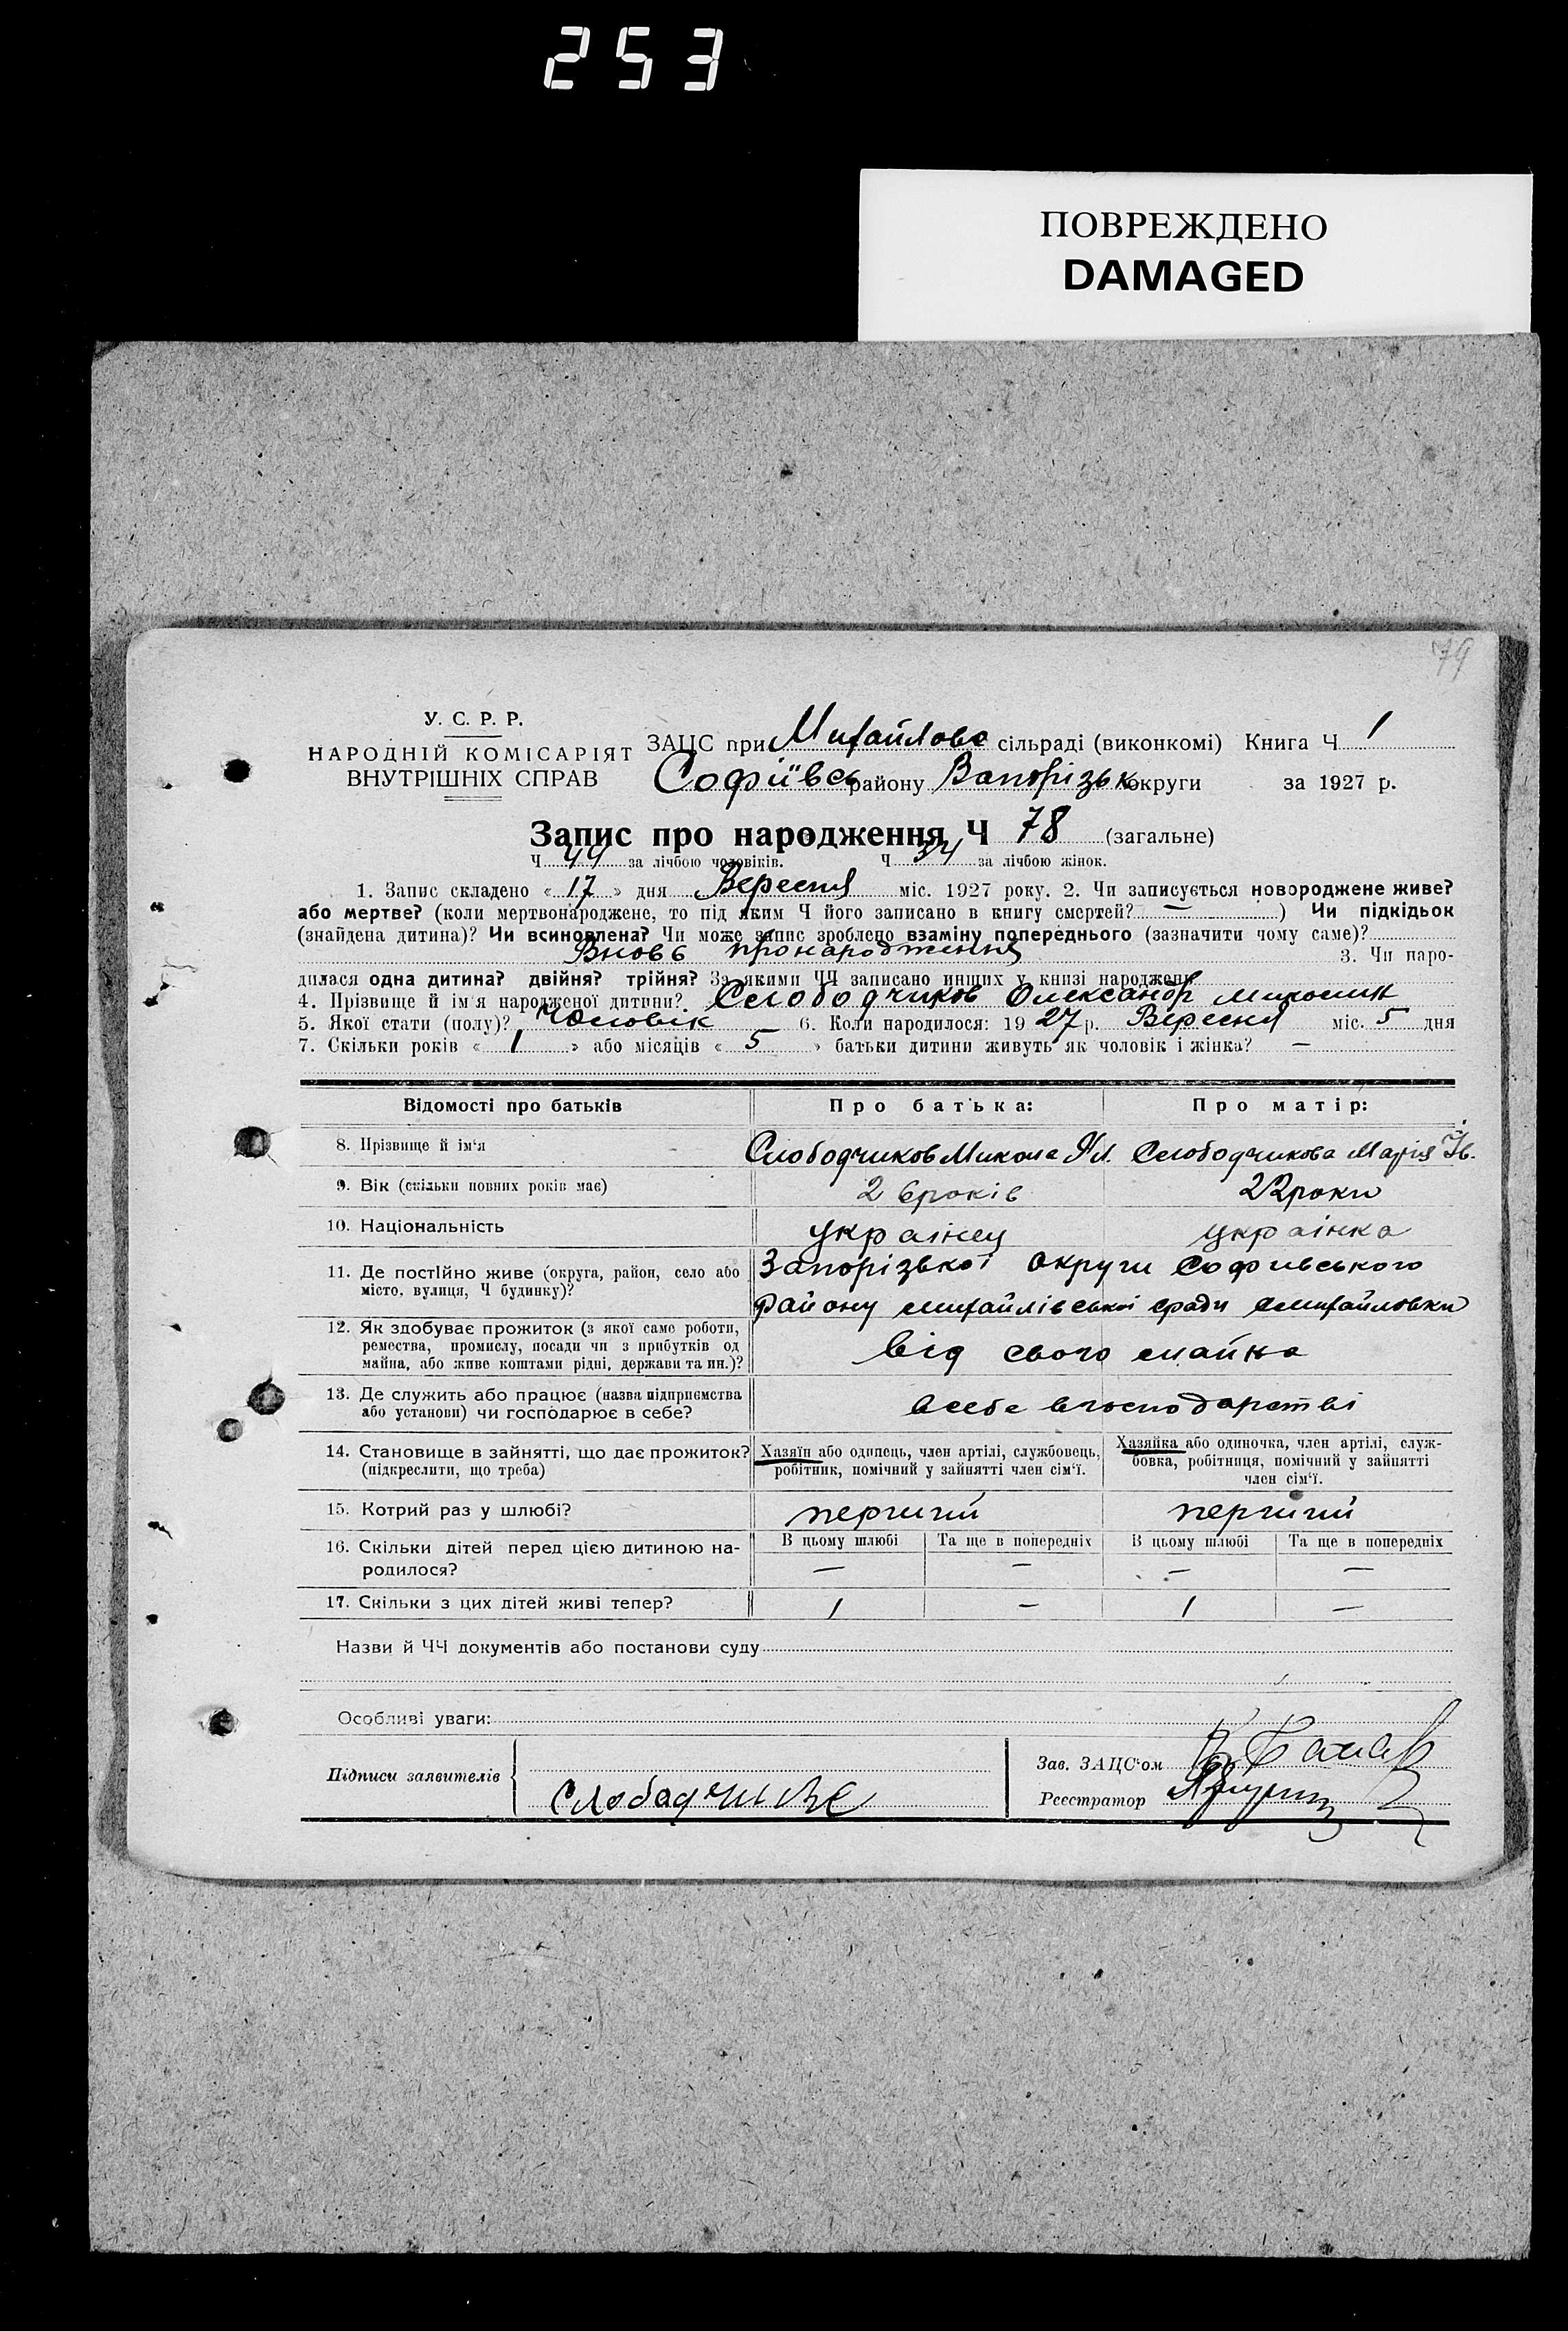 253
ПОВРЕЖДЕНО
DAMAGED
79
У. С. Р. Р.
НАРОДНІЙ КОМІСАРІЯТ
ВНУТРІШНІХ СПРАВ
ЗАЦС при Михайлове сільраді (виконкомі) Книга Ч 1
Софіївськ району Запорізьк округи за 1927 р.
Запис про народження Ч 78 (загальне)
Ч 44 за лічбою чоловіків. Ч 34 за лічбою жінок.
1. Запис складено « 17 » дня Вересня міс. 1927 року. 2. Чи записується новороджене живе?
або мертве? (коли мертвонароджене, то під яким Ч його записано в книгу смертей? — ) Чи підкідьок
(знайдена дитина)? Чи всиновлена? Чи може запис зроблено взаміну попереднього (зазначити чому саме)?
Вновь про народження 3. Чи наро-
дилася одна дитина? двійня? трійня? За якими ЧЧ записано инших у книзі народжень
4. Прізвище й ім'я народженої дитини? Слободчиков Олександр
5. Якої стати (полу)? Чоловік 6. Коли народилося: 1927 р. Вересня міс. 5 дня
7. Скільки років « 1 » або місяців « 5 » батьки дитини живуть як чоловік і жінка? —
Відомості про батьків Про батька: Про матір:
8. Прізвище й ім'я Слободчиков Микола Слободчикова Марія Ів.
9. Вік (скільки повних років має) 26 років 22 роки
10. Національність українец українка
11. Де постійно живе (округа, район, село або Запорізької округи Софиевського
місто, вулиця, Ч будинку)? району михайлівської сради смихайловки
12. Як здобуває прожиток (з якої саме роботи,
ремества, промислу, посади чи з прибутків од від свого майна
майна, або живе коштами рідні, держави та ин.)?
13. Де служить або працює (назва підприємства
або установи) чи господарює в себе? всебе вгосподарстві
14. Становище в зайнятті, що дає прожиток? Хазяїн або одинець, член артілі, службовець, Хазяйка або одиночка, член артілі, служ-
(підкреслити, що треба) робітник, помічний у зайнятті член сім'ї. бовка, робітниця, помічний у зайнятті
член сім'ї.
15. Котрий раз у шлюбі? перший перший
16. Скільки дітей перед цією дитиною на- В цьому шлюбі Та ще в попередніх В цьому шлюбі Та ще в попередніх
родилося? — — — —
17. Скільки з цих дітей живі тепер? 1 — 1 —
Назви й ЧЧ документів або постанови суду
Особливі уваги:
Підписи заявителів
Зав. ЗАЦС'ом
Реєстратор